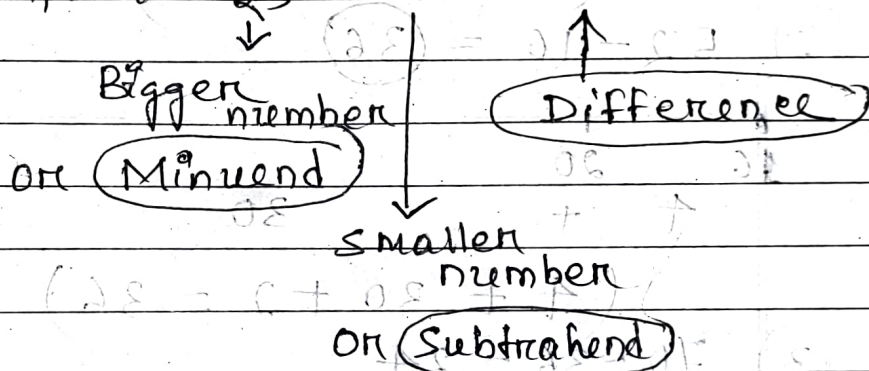 Bigger
number
Difference
or Minuend
smaller
number
or Subtrahend